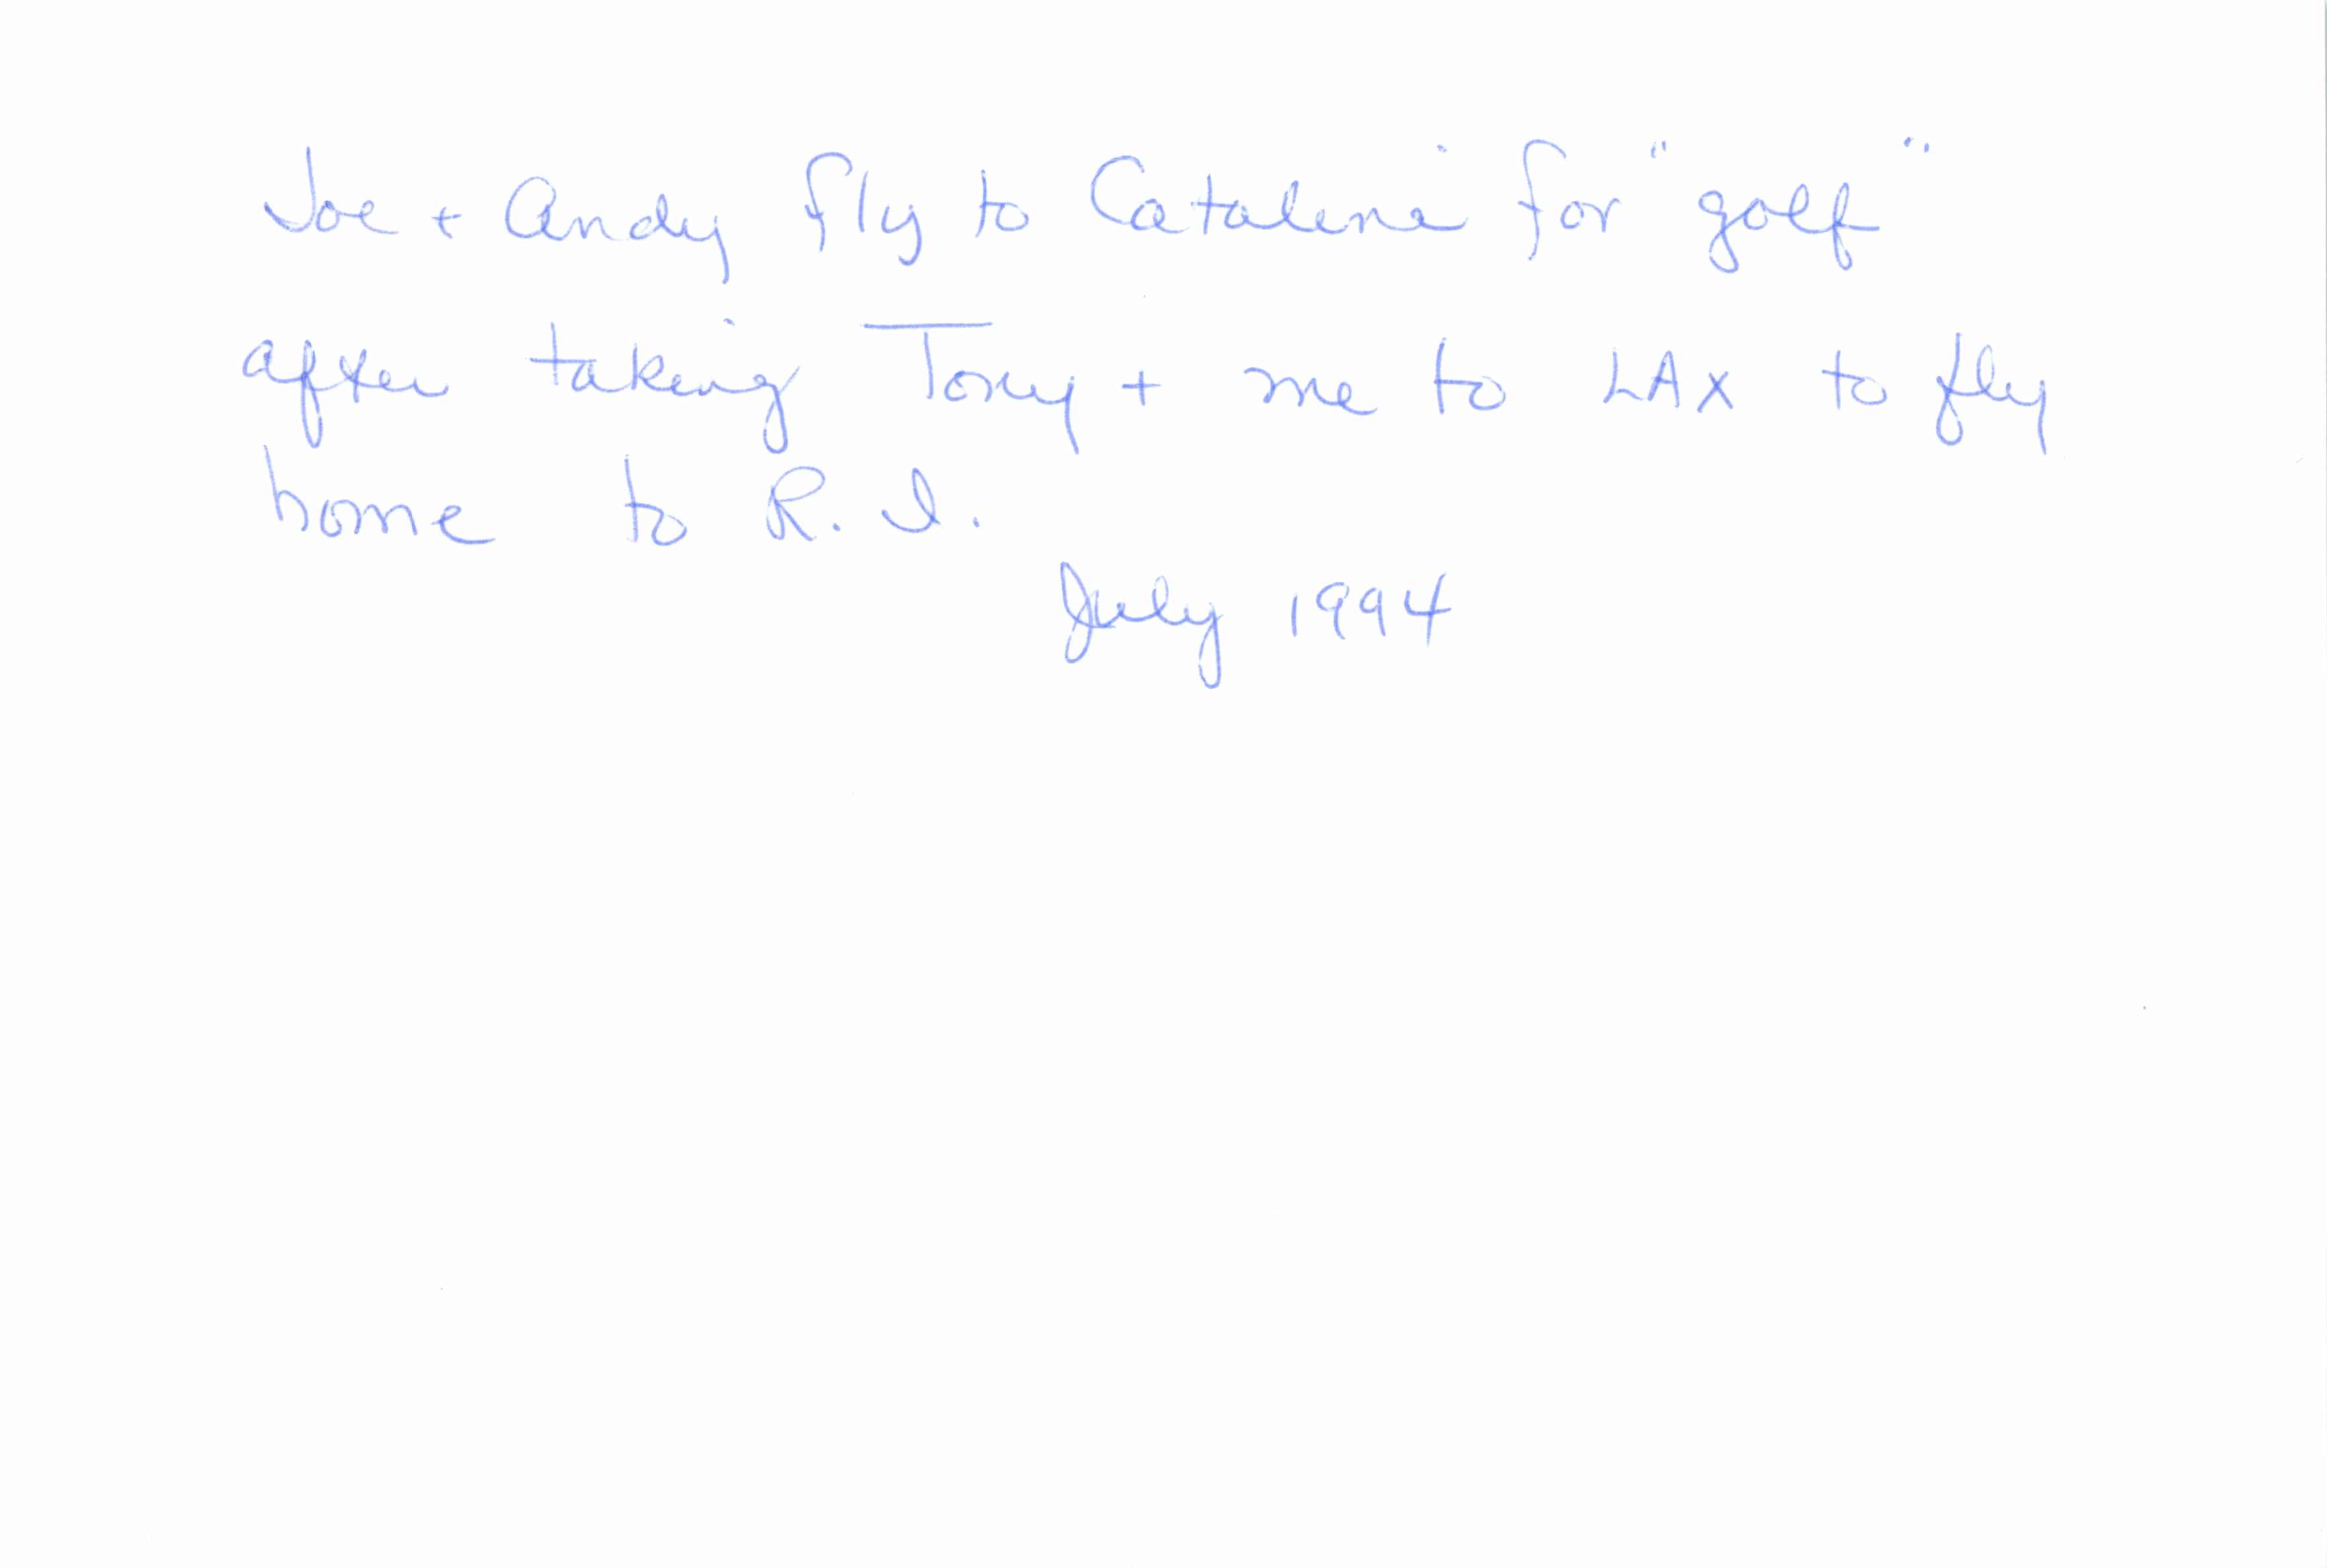 Joe + Andy fly to Catalina for "golf"
after taking Tony + me to LAX to fly
home to R.I.
July 1994